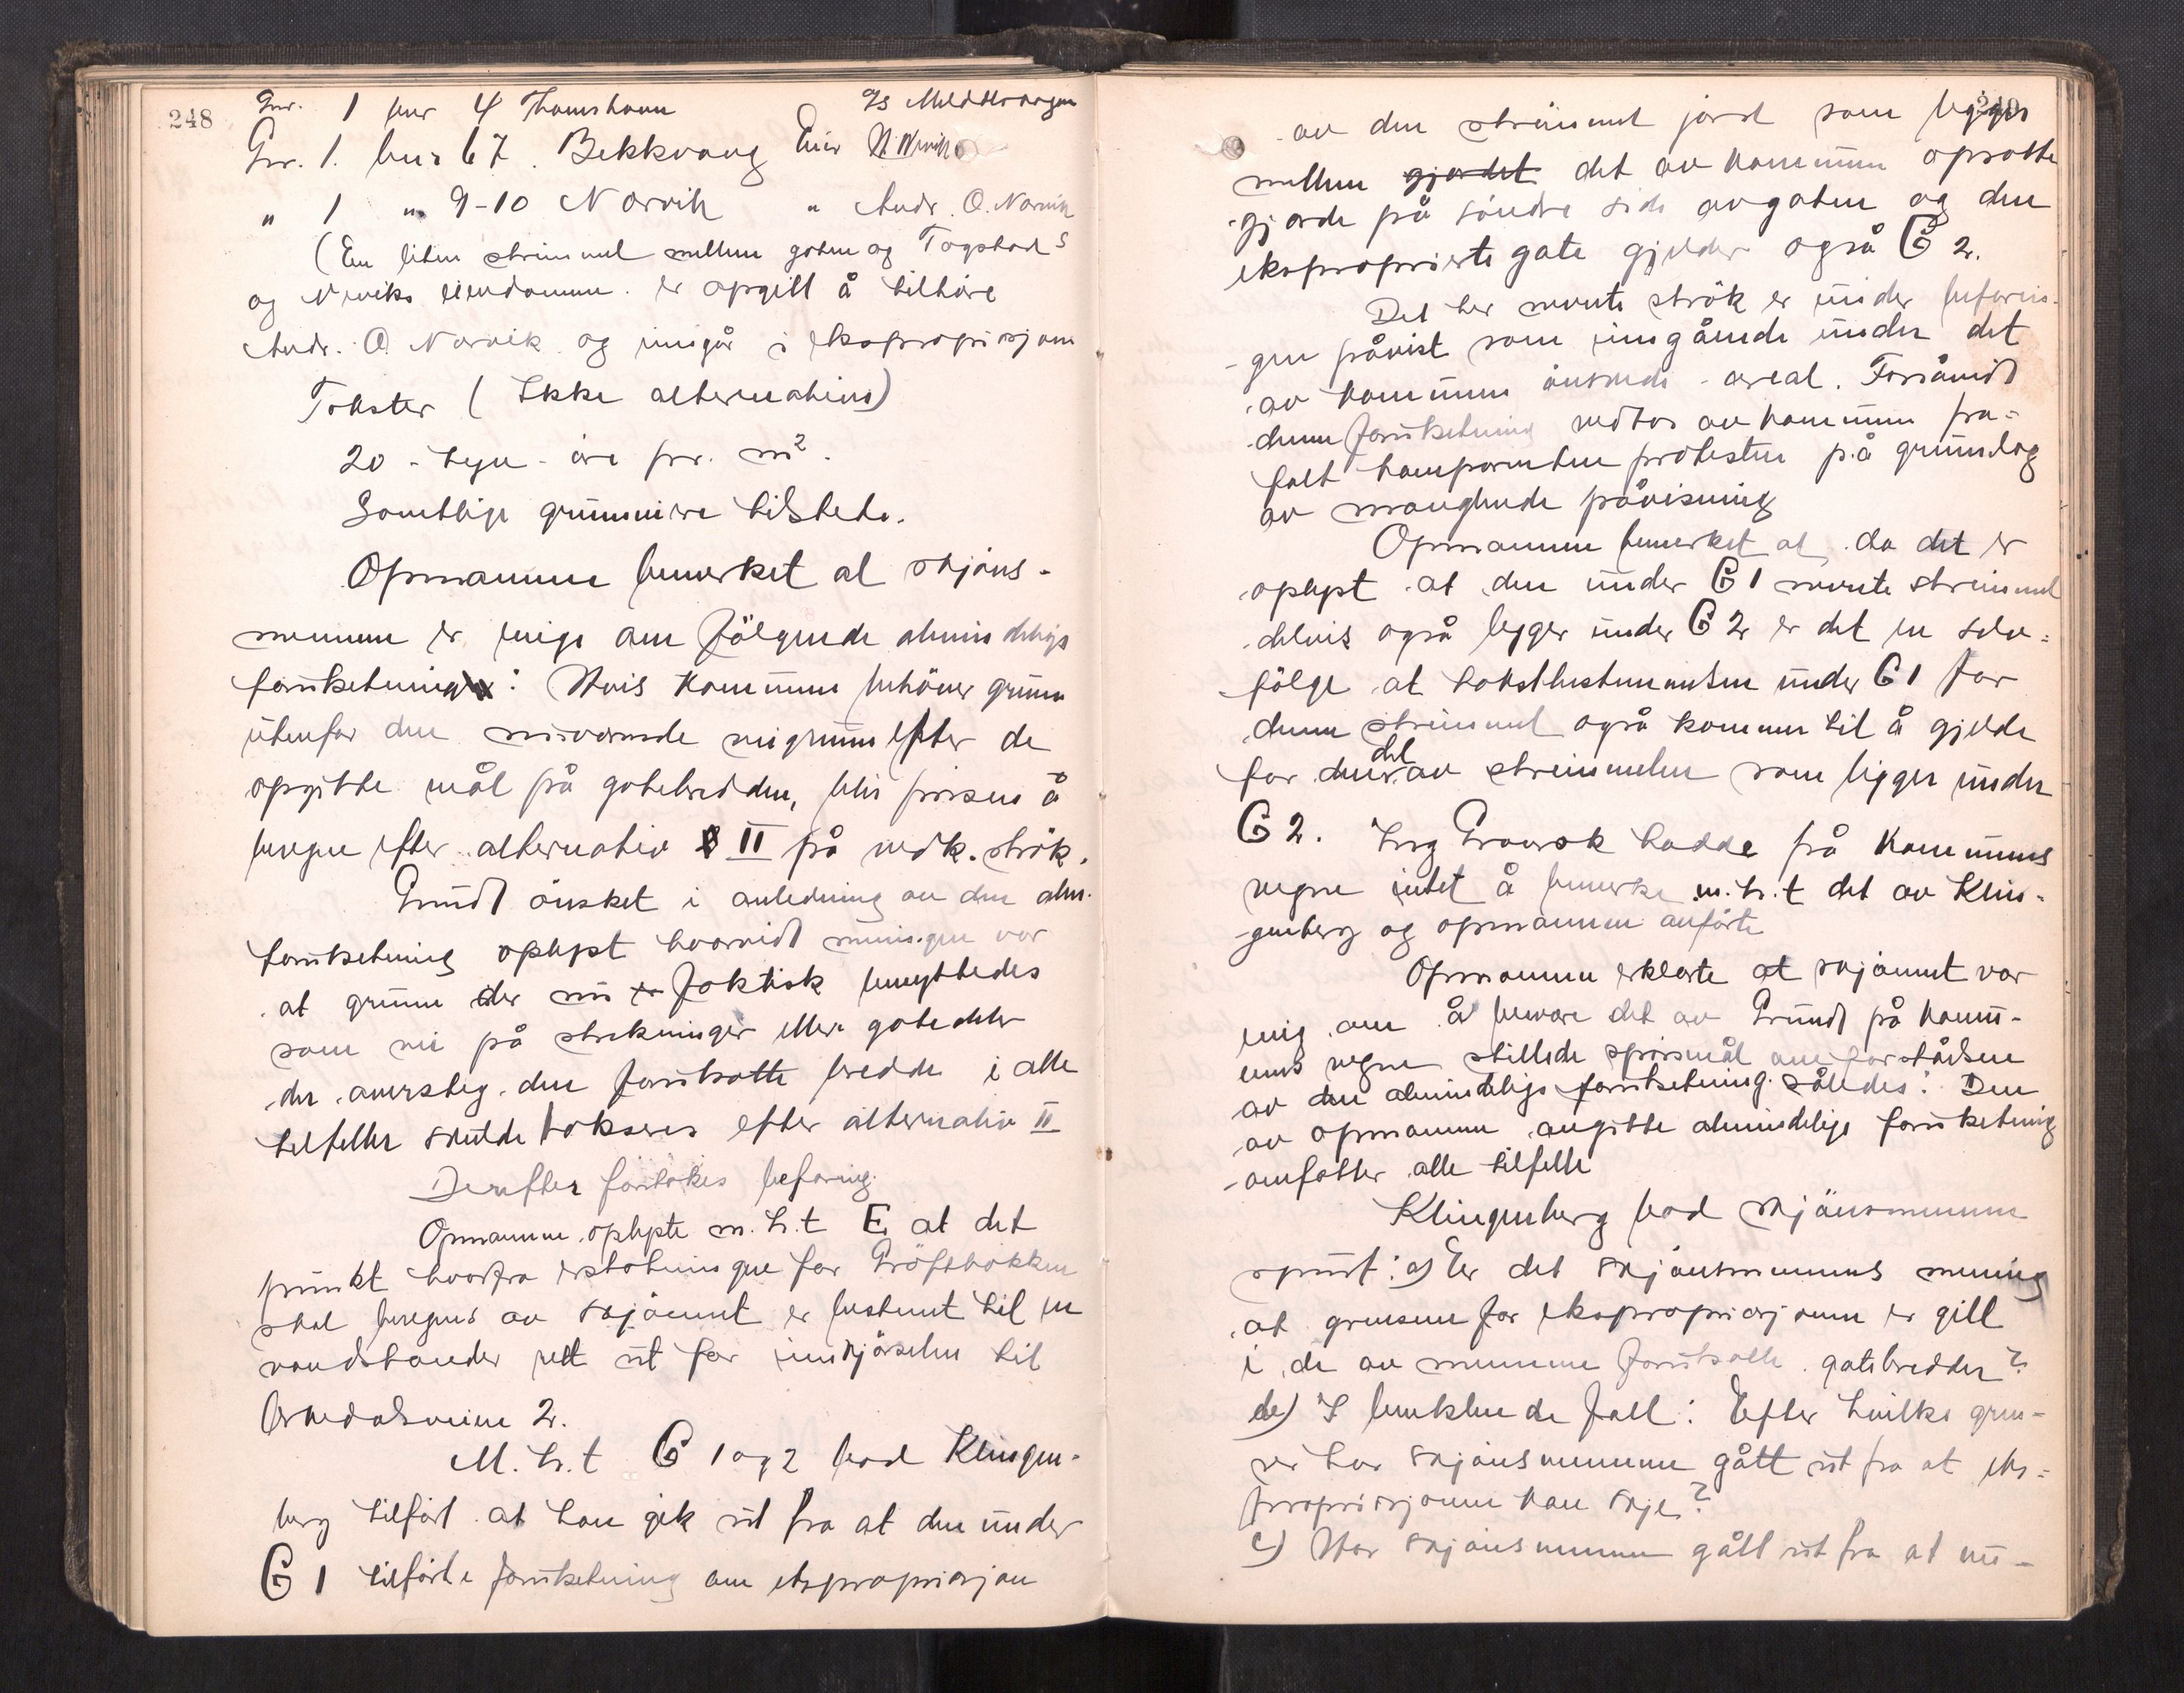 248
Gnr. 1 bnr 4 Thamshavn Is Melddalvangen
Gnr. 1. bnr 67. Bekkvang Eier N. Nervik
" 1 " 9-10 Norvik " Andr. O. Norvik
(En liten strimmel mellem gaten og Togstads
og Nerviks eiendomme er opgitt å tilhöre
Andr. O. Norvik og inngår i ekspropriasjonen
Takster (Ikke alternativ)
20 - tyve - öre pr. m².
Samtlige grunneiere tilstede.
Opmannen bemerket at skjöns-
mennene er enige om fölgende almindelige
forutsetning: Hvis kommunen behöver grunn
utenfor den nuværende veigrunn efter de
opgitte mål på gatebredden, blir prisen å
beregne efter alternativ II på vedk. strök.
Grundt önsket i anledning av den alm.
forutsetning oplyst hvorvidt meningen var
at grunn der nu faktisk benyttedes
som vei på strekninger eller gatedeler
der oversteg den forutsatte bredde i alle
tilfeller skulde takseres efter alternativ II
Derefter foretokes befaring.
Opmannen oplyste m.h.t E at det
punkt hvorfra erstatningen for Gröftebakken
skal beregnes av skjönnet er bestemt til en
vandstander rett ut for innkjörselen til
Orkedalsveien 2.
M.h.t G 1 og 2 bad Klingen-
berg tilfört at han gik ut fra at den under
G 1 tilförte forutsetning om ekspropriasjon
249
av den strimmel jord som ligger
mellem gjerdet det av kommunen opsatte
gjerde på söndre side av gaten og den
eksproprierte gate gjelder også G 2.
Det her nevnte strök er under befarin-
gen påvist som inngående under det
av kommunen önskede areal. Forsåvidt
denne forutsetning vedtas av kommunen fra-
falt komparenten protesten på grunnlag
av manglende påvisning
Opmannen bemerket at da det er
oplyst at den under G 1 nevnte strimmel
delvis også ligger under G 2 er det en selv-
fölge at takstbestemmelsen under G 1 for
denne strimmel også kommer til å gjelde
for den del av strimmelen som ligger under
G 2. Ing Gransk hadde på kommunens
vegne intet å bemerke m.h.t det av Klin-
genberg og opmannen anförte
Opmannen erklærte at skjönnet var
enig om å besvare det av Grundt på komm-
unens vegne stillede spörsmål om forståelsen
av den almindelige forutsetning således: Den
av opmannen angitte almindelige forutsetning
omfatter alle tilfelle
Klingenberg bad skjönsmennene
spurt: a) Er det skjönsmennenes mening
at grensene for ekspropriasjonen er gitt
i de av mennene forutsatte gatebredder?
b) I benektende fall: Efter hvilke gren-
ser har skjönsmennene gått ut fra at eks-
propriasjonen kan skje?
c) Har skjönsmennene gått ut fra at nu-